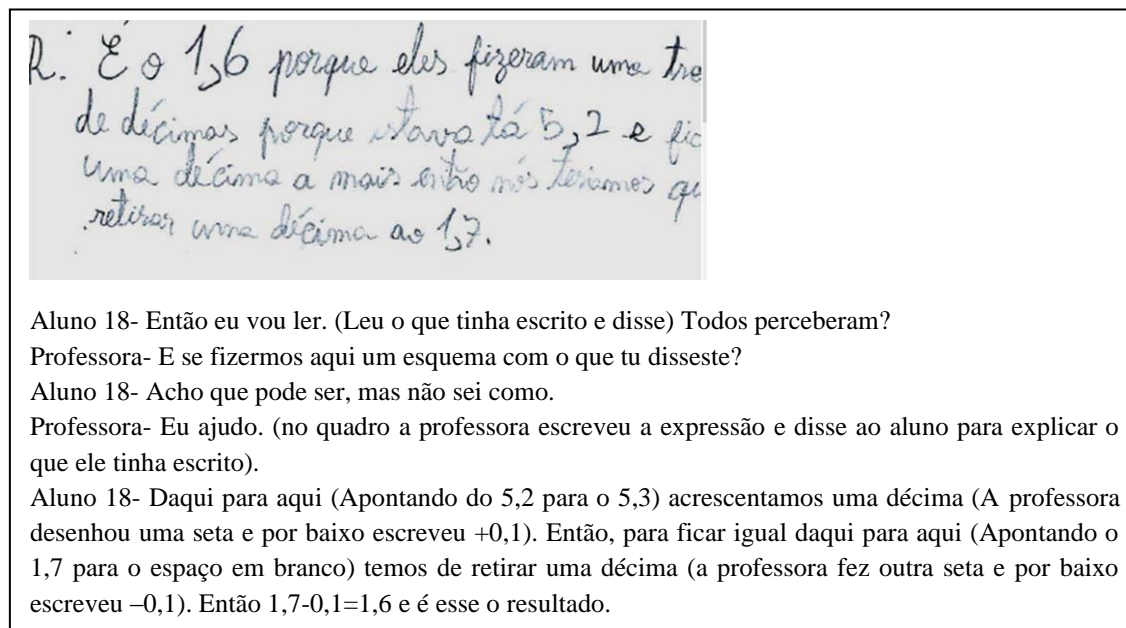 R: É o 1,6 porque eles fizeram uma tro
de décimas porque estava tá 5,2 e fic
uma décima a mais então nós teriamos qu
retirar uma décima ao 1,7.
Aluno 18- Então eu vou ler. (Leu o que tinha escrito e disse) Todos perceberam?
Professora- E se fizermos aqui um esquema com o que tu disseste?
Aluno 18- Acho que pode ser, mas não sei como.
Professora- Eu ajudo. (no quadro a professora escreveu a expressão e disse ao aluno para explicar o
que ele tinha escrito).
Aluno 18- Daqui para aqui (Apontando do 5,2 para o 5,3) acrescentamos uma décima (A professora
desenhou uma seta e por baixo escreveu +0,1). Então, para ficar igual daqui para aqui (Apontando o
1,7 para o espaço em branco) temos de retirar uma décima (a professora fez outra seta e por baixo
escreveu –0,1). Então 1,7-0,1=1,6 e é esse o resultado.